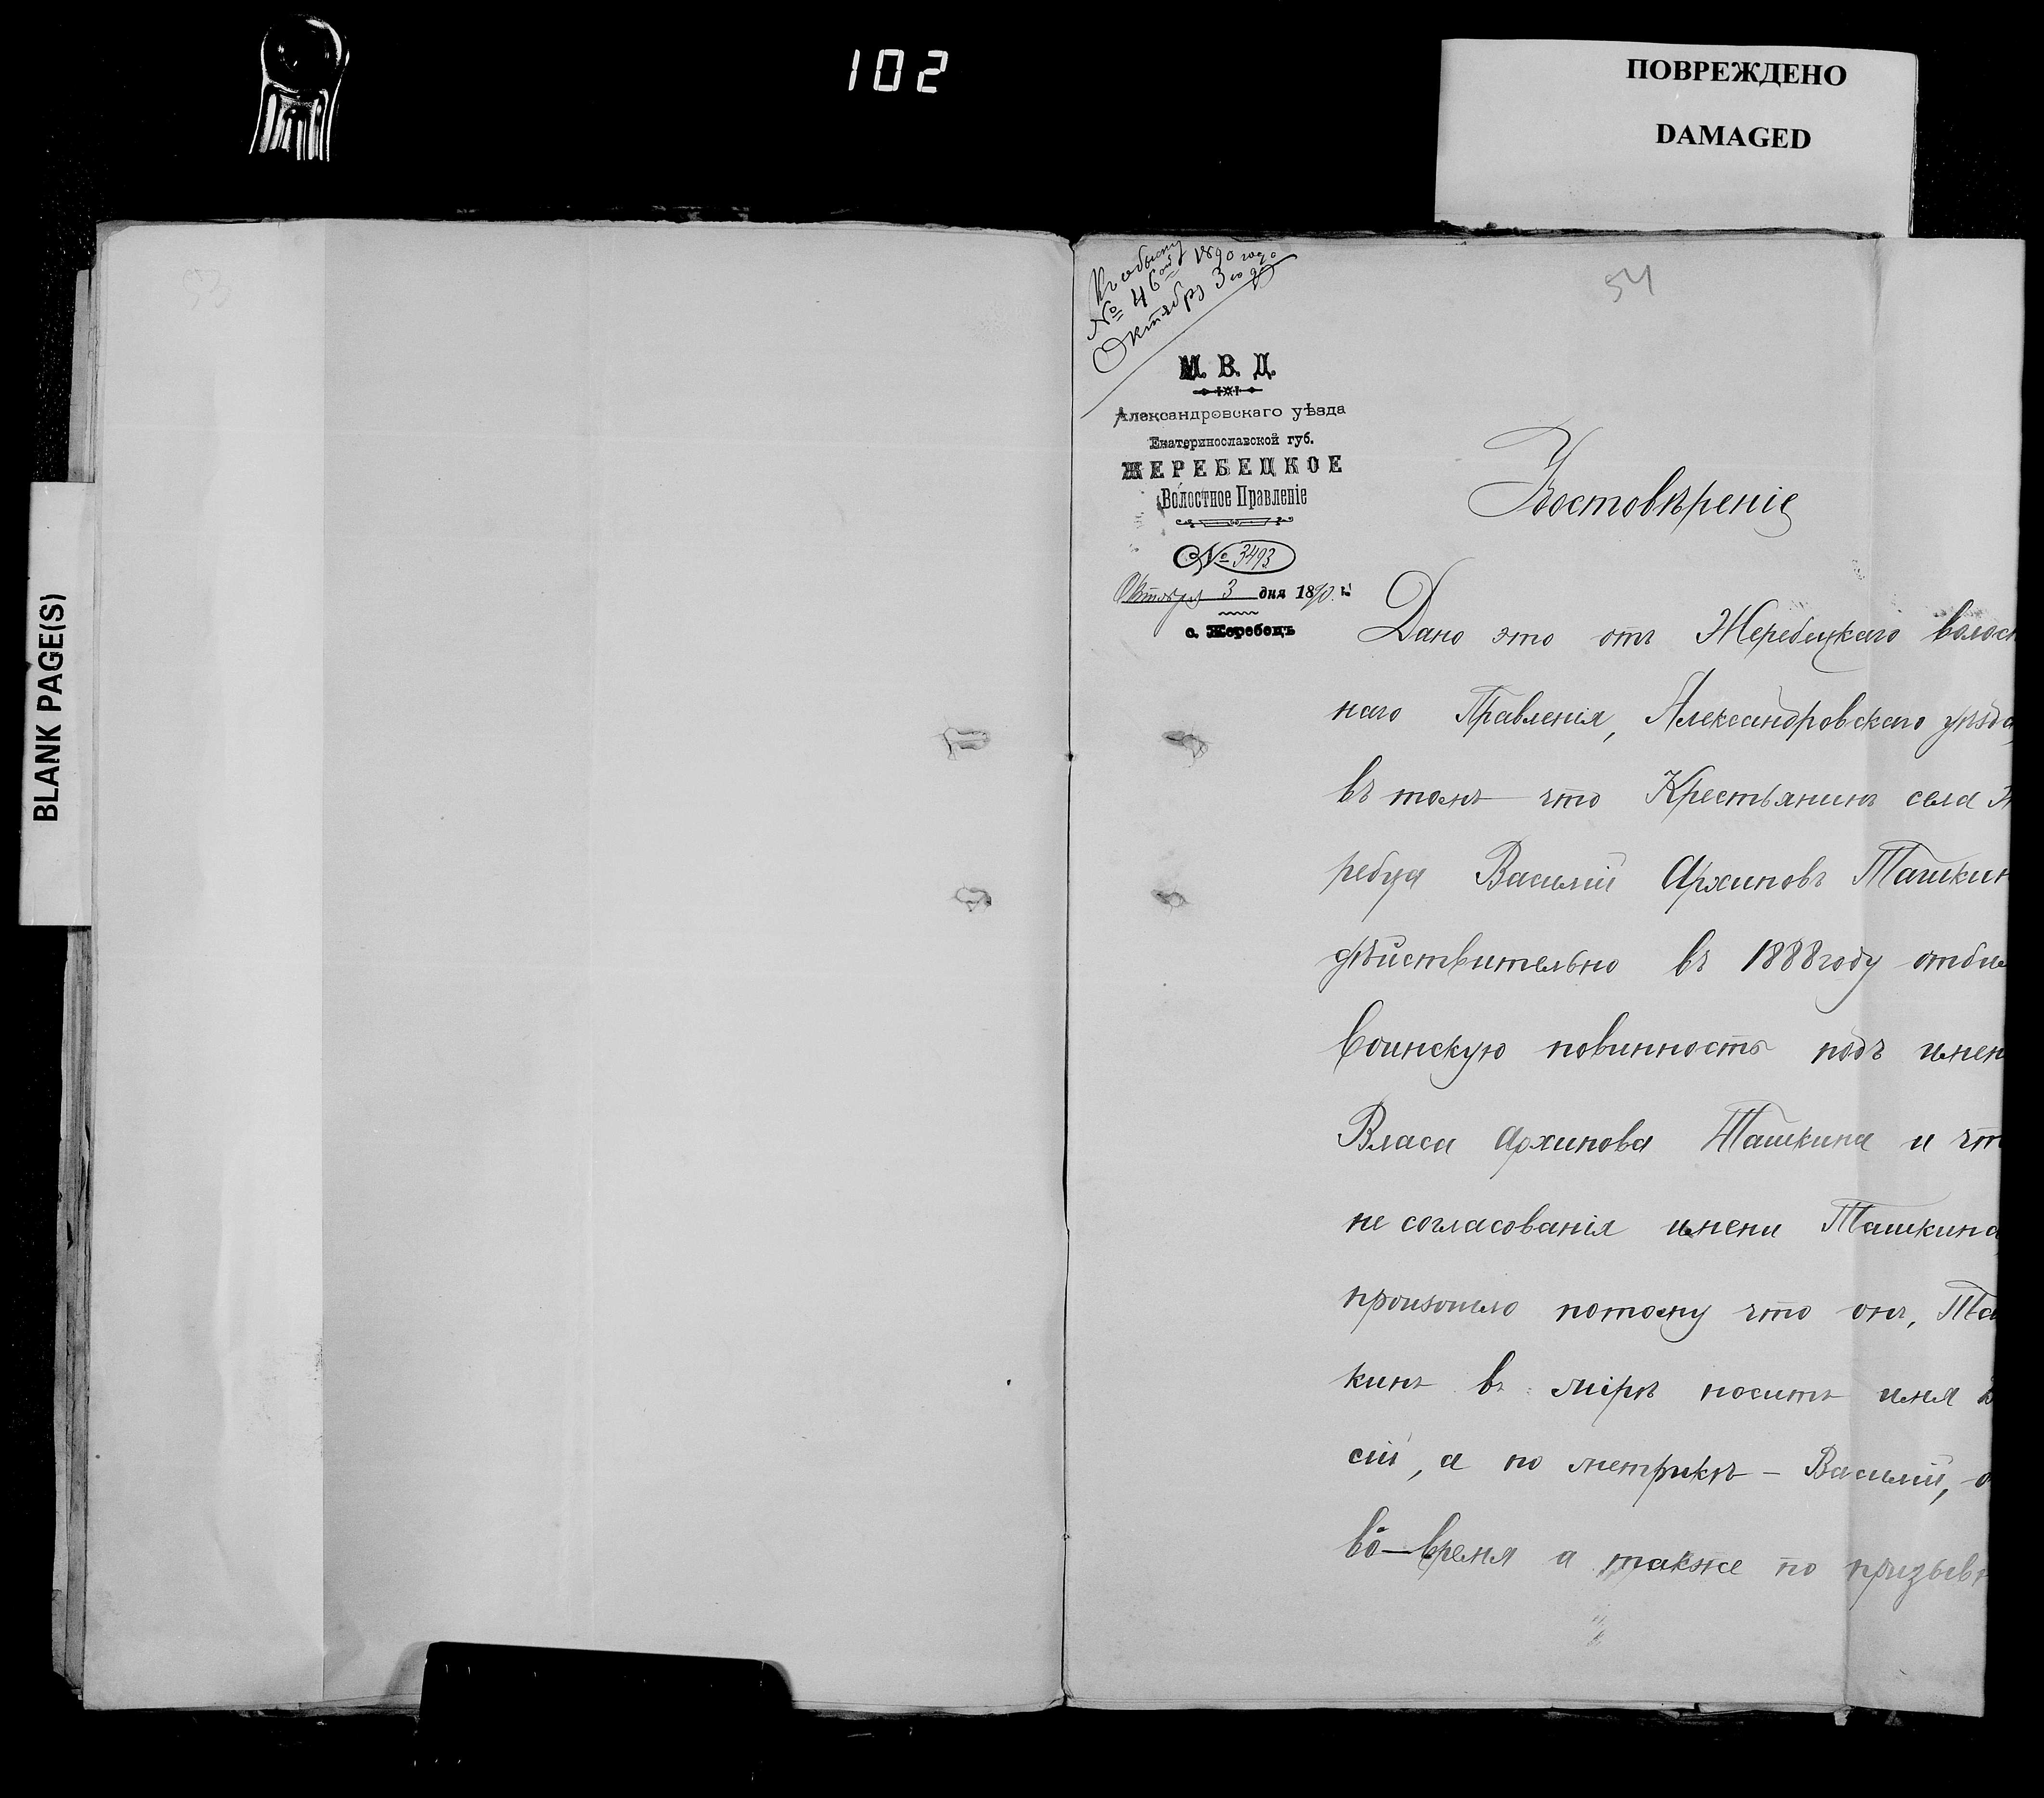 102
ПОВРЕЖДЕНО
DAMAGED
BLANK PAGE(S)
53
54
Къ обыску
№ 46ой 1890 года
Октября 3го дня
М. В. Д.
Александровскаго уѣзда
Екатеринославской губ.
ЖЕРЕБЕЦКОЕ
Волостное Правленіе
№ 3493
Октября 3 дня 1890 г.
с. Жеребецъ
Удостовѣреніе
Дано это отъ Жеребецкаго волост
наго Правленія, Александровскаго уѣзда,
въ томъ что Крестьянинъ села Ж
ребца Василій Архиповъ Ташкин
дѣйствительно въ 1888 году отбы
воинскую повинность подъ имен
Власа Архипова Ташкина и чт
не согласованія имени Ташкина
произошло потому что онъ, Та
кинъ въ мірѣ носитъ имя В
сій, а по метрикѣ - Василій,
во-время а также по призыв